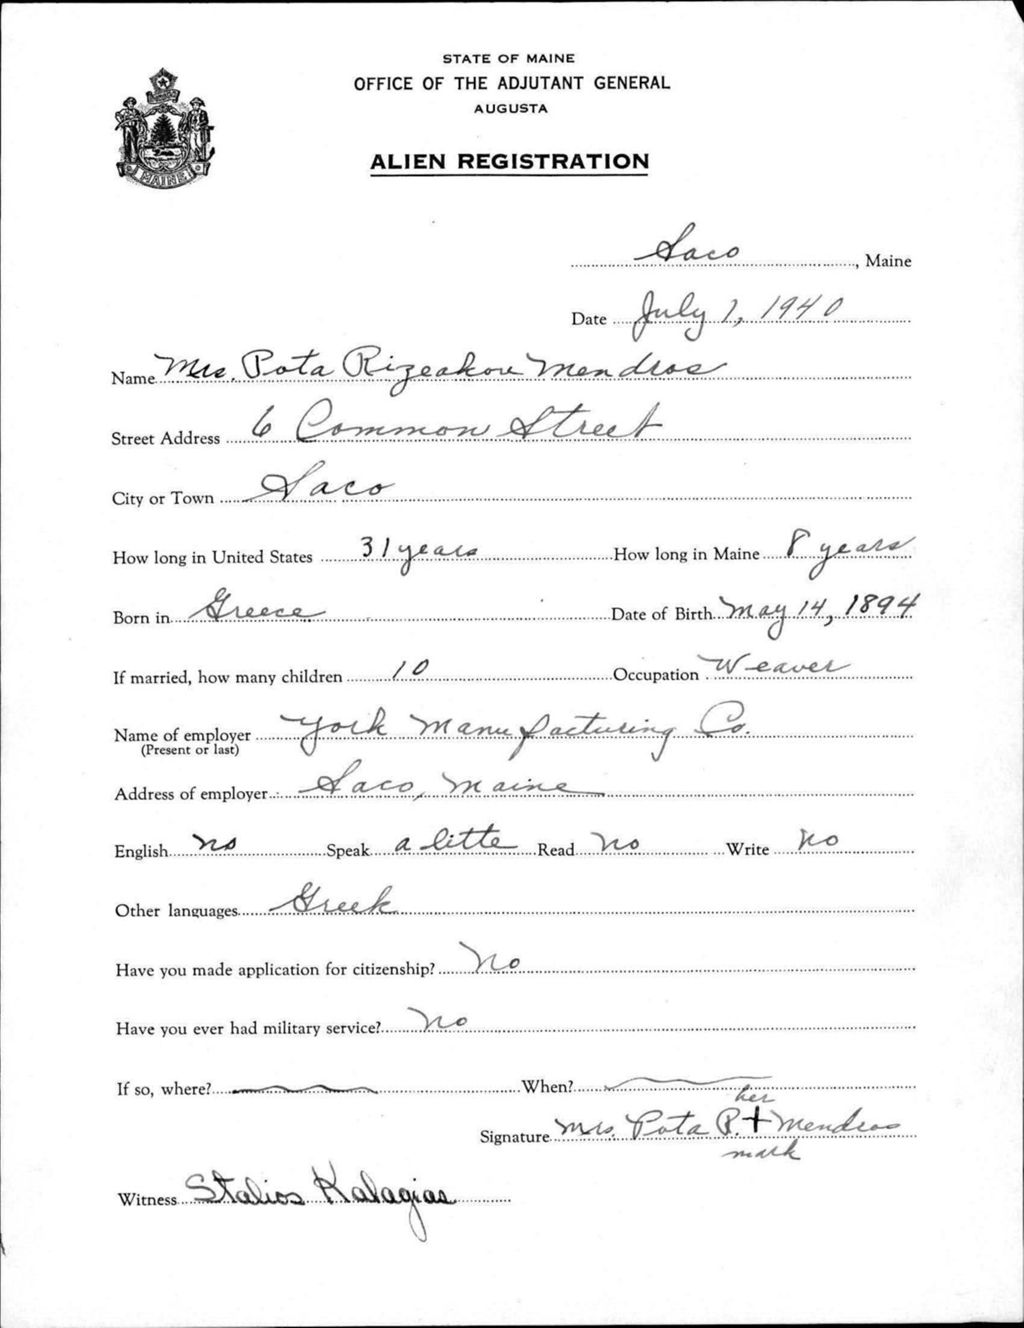 STATE OF MAINE
OFFICE OF THE ADJUTANT GENERAL
AUGUSTA
MAINE
ALIEN REGISTRATION
Saco, Maine
Date July 1, 1940
Name Mrs. Pota Rizeakou Mendros
Street Address 6 Common Street
City or Town Saco
How long in United States 31 years How long in Maine 8 years
Born in Greece Date of Birth May 14, 1894
If married, how many children 10 Occupation Weaver
Name of employer York Manufacturing Co.
(Present or last)
Address of employer Saco, Maine
English no Speak a little Read no Write no
Other languages Greek
Have you made application for citizenship? No
Have you ever had military service? No
If so, where? When?
her
Signature Mrs. Pota R. + Mendros
mark
Witness Stalios Kalagias